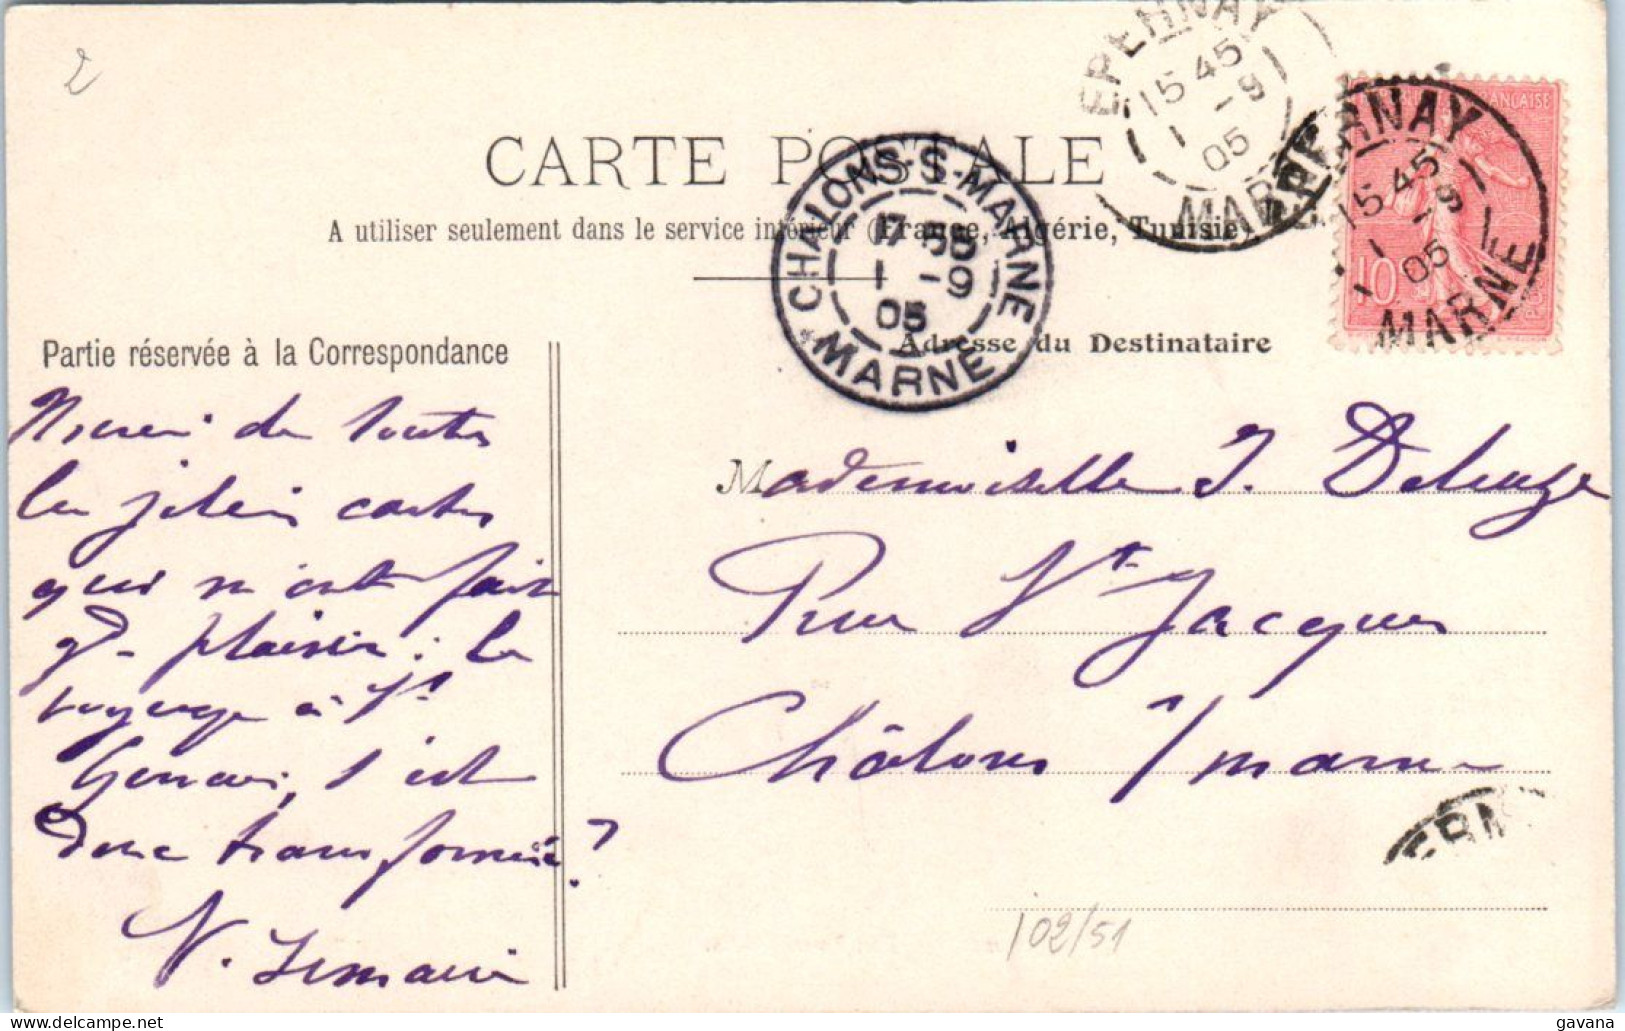 2
CARTE POSTALE
A utiliser seulement dans le service intérieur (France, Algérie, Tunisie)
EPERNAY
15 45
1 -9
05
MARNE
EPERNAY
15 45
1 -9
05
MARNE
FRANÇAISE
10
CHALONS-S-MARNE
17
1 -9
05
* MARNE
Partie réservée à la Correspondance
Adresse du Destinataire
Merci de toutes
les jolies cartes
qui m'ont fait
gd plaisir : le
voyage à St
Gervais, s'est
donc transformé ?
V. Lemaire
Mademoiselle J. Deleuze
Rue St Jacques
Châlons s/ marne
102/51
gavana